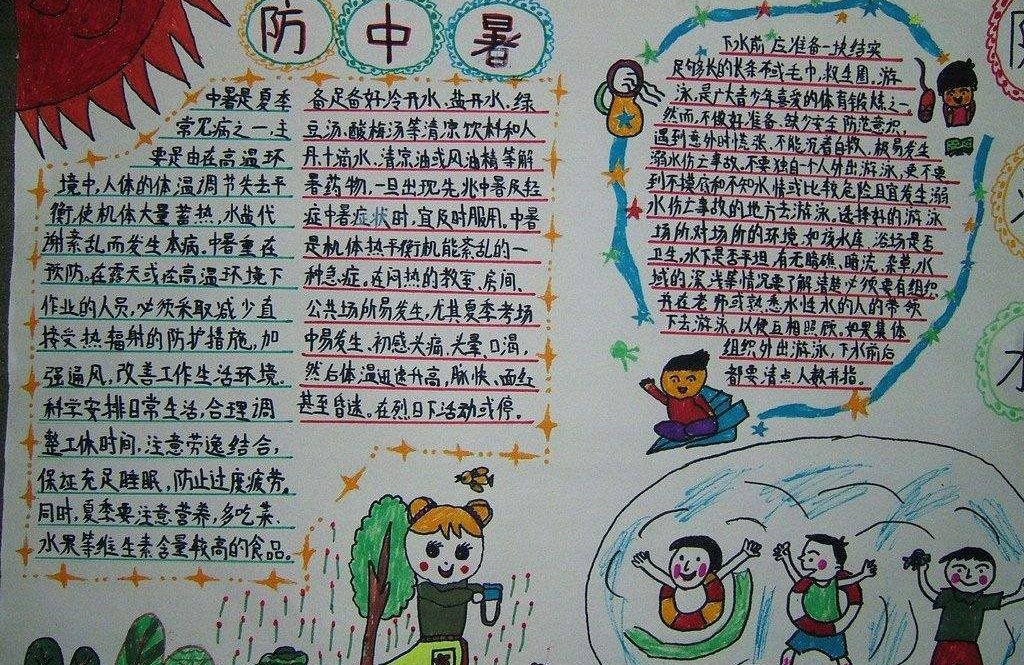 防中暑
中暑是夏季
常见病之一,主
要是由在高温环
境中,人体的体温调节失去平
衡,使机体大量蓄热,水盐代
谢紊乱而发生本病。中暑重在
预防。在露天或在高温环境下
作业的人员,必须采取减少直
接受热辐射的防护措施,加
强通风,改善工作生活环境。
科学安排日常生活,合理调
整工休时间,注意劳逸结合,
保证充足睡眠,防止过度疲劳。
同时,夏季要注意营养,多吃菜、
水果等维生素含量较高的食品。
备足备好冷开水、盐开水、绿
豆汤、酸梅汤等清凉饮料和人
丹十滴水、清凉油或风油精等解
暑药物,一旦出现先兆中暑及轻
症中暑症状时,宜及时服用。中暑
是机体热平衡机能紊乱的一
种急症。在闷热的教室、房间、
公共场所易发生,尤其夏季考场
中易发生、初感头痛、头晕、口渴,
然后体温迅速升高,脉快、面红
甚至昏迷。在烈日下活动或停。
下水前应准备一块结实
足够长的长条布或毛巾,救生圈,游
泳,是广大青少年喜爱的体育锻炼之一,
然而,不做好准备、缺少安全防范意识,
遇到意外时慌张、不能沉着自救,极易发生
溺水伤亡事故,不要独自一个人外出游泳,更不要
到不摸底和不知水情或比较危险且宜发生溺
水伤亡事故的地方去游泳,选择好的游泳
场所对场所的环境,如该水库、浴场是否
卫生,水下是否平坦,有无暗礁、暗流、杂草,水
域的深浅等情况要了解清楚必须要有组织
并在老师或熟悉水性水的人的带领
下去游泳,以便互相照顾。如果集体
组织外出游泳,下水前后
都要清点人数并指。
水